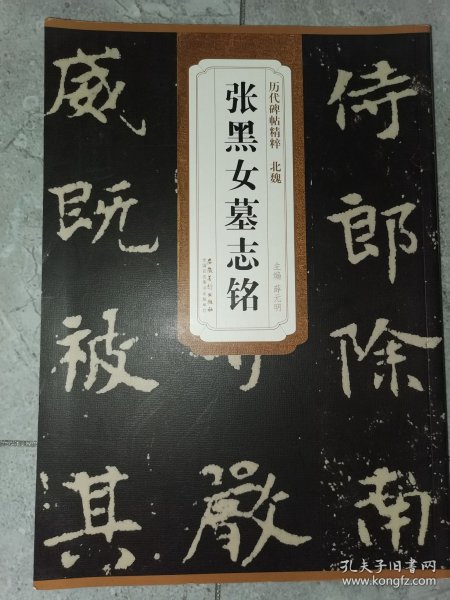 历代碑帖精粹 北魏
张黑女墓志铭
主编 薛元明
安徽美术出版社
侍郎除南
嚴
威既被其
孔夫子旧书网
www.kongfz.com